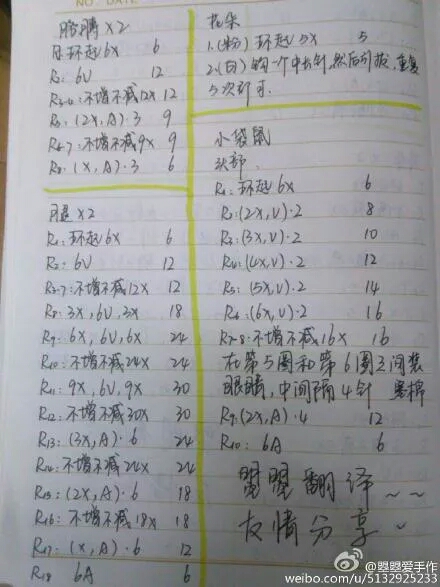 NO. DATE
胳膊 X2
R1: 环起6X 6
R2: 6V 12
R3-4: 不增不减12X 12
R5: (2X, A)·3 9
R6-7: 不增不减9X 9
R8: (X, A)·3 6
腿 X2
R1: 环起6X 6
R2: 6V 12
R3-7: 不增不减12X 12
R8: 3X, 6V, 3X 18
R9: 6X, 6V, 6X 24
R10: 不增不减24X 24
R11: 9X, 6V, 9X 30
R12: 不增不减30X 30
R13: (3X, A)·6 24
R14: 不增不减24X 24
R15: (2X, A)·6 18
R16: 不增不减18X 18
R17: (X, A)·6 12
R18 6A 6
花朵
1. (粉) 环起5X 5
2. (白) 钩一个中长针, 然后引拔, 重复
5次即可.
小袋鼠
头部
R1: 环起6X 6
R2: (2X, V)·2 8
R3: (3X, V)·2 10
R4: (4X, V)·2 12
R5: (5X, V)·2 14
R6: (6X, V)·2 16
R7-8: 不增不减16X 16
在第5圈和第6圈之间装
眼睛, 中间隔4针 塞棉
R9: (2X, A)·4 12
R10: 6A 6
曌曌翻译~~
友情分享~
@曌曌爱手作
weibo.com/u/5132925233